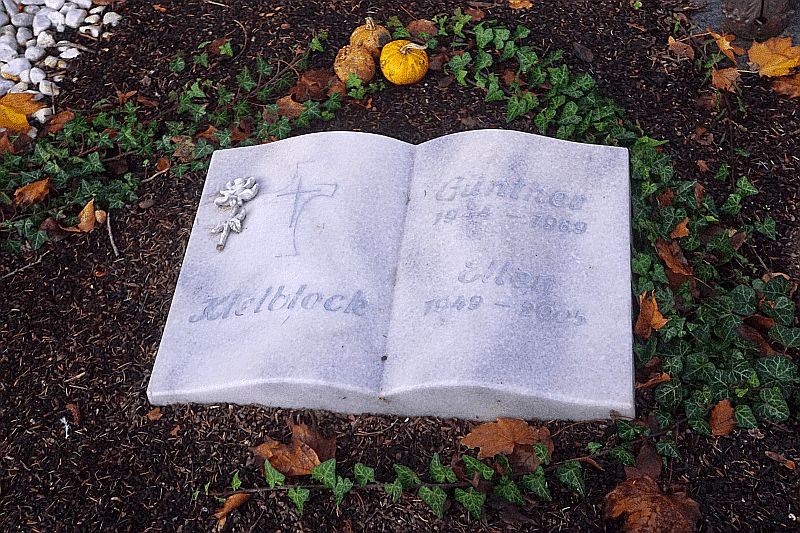 Kielblock
Günther
1944 - 1969
Ellen
1949 - 2004